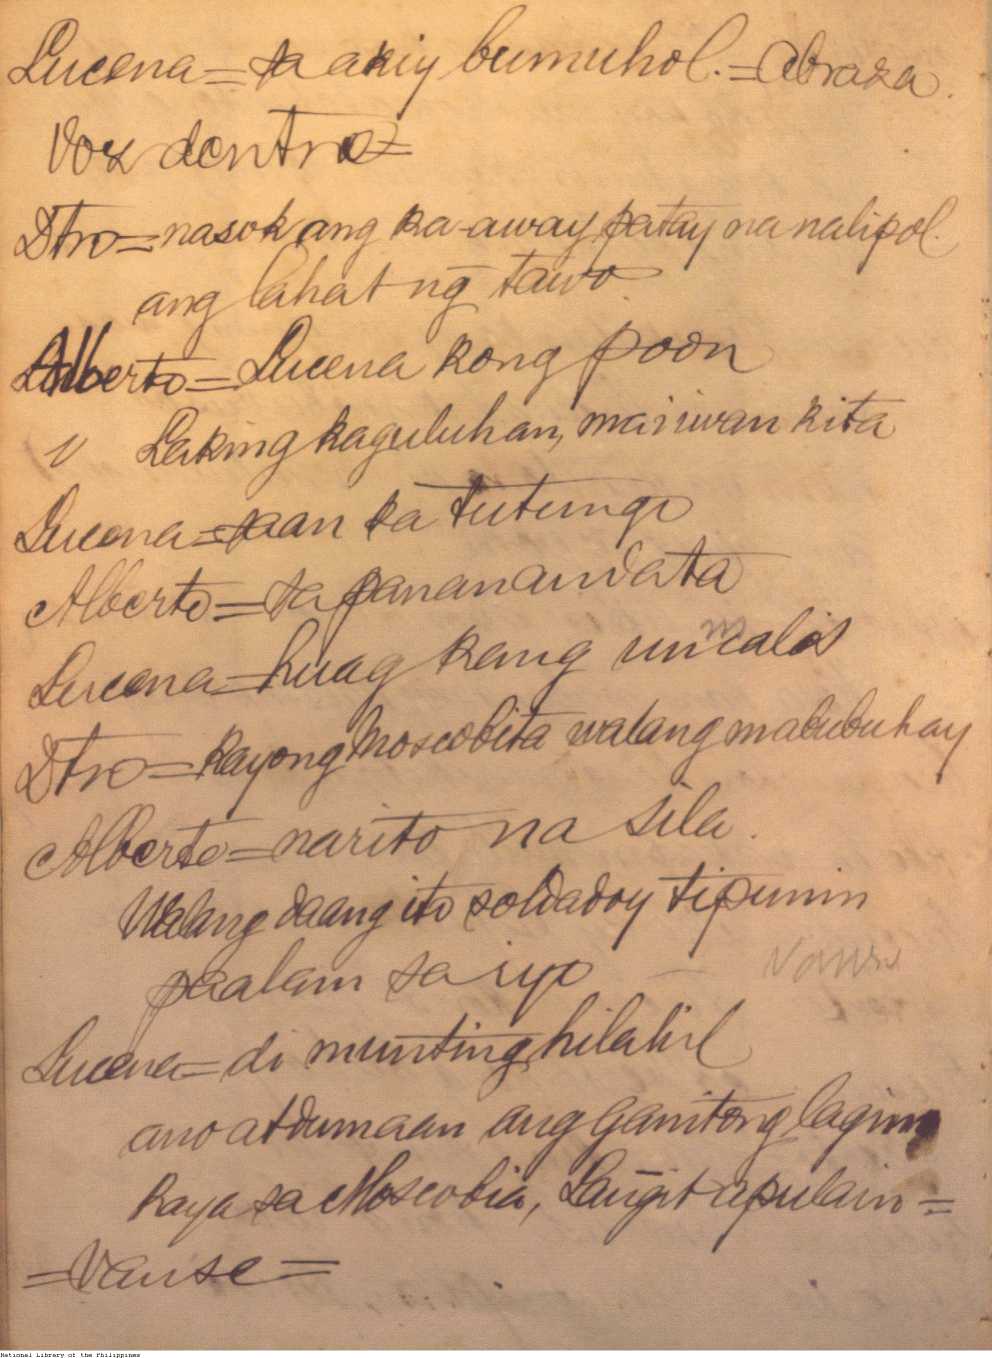 Lucena = sa akiy bumuhol. = Abraza.
Voz dentro =
Dtro = nasok ang ka-away patay na nalipol.
ang lahat ng̃ tawo
Alberto = Lucena kong poon
Laking kaguluhan, maiiwan kita
Lucena = saan ka tutungo
Alberto = sa pananandata
Lucena = huag kang umalis
Dtro = kayong Moscobita walang mabubuhay
Alberto = narito na sila.
Walang daang ito soldadoy tipunin
paalam sa iyo
Vanse
Lucena = di munting hilahil
ano at dumaan ang ganitong lagim
kaya sa Moscobia, Lang̃it apulain =
= Vanse =
National Library of the Philippines